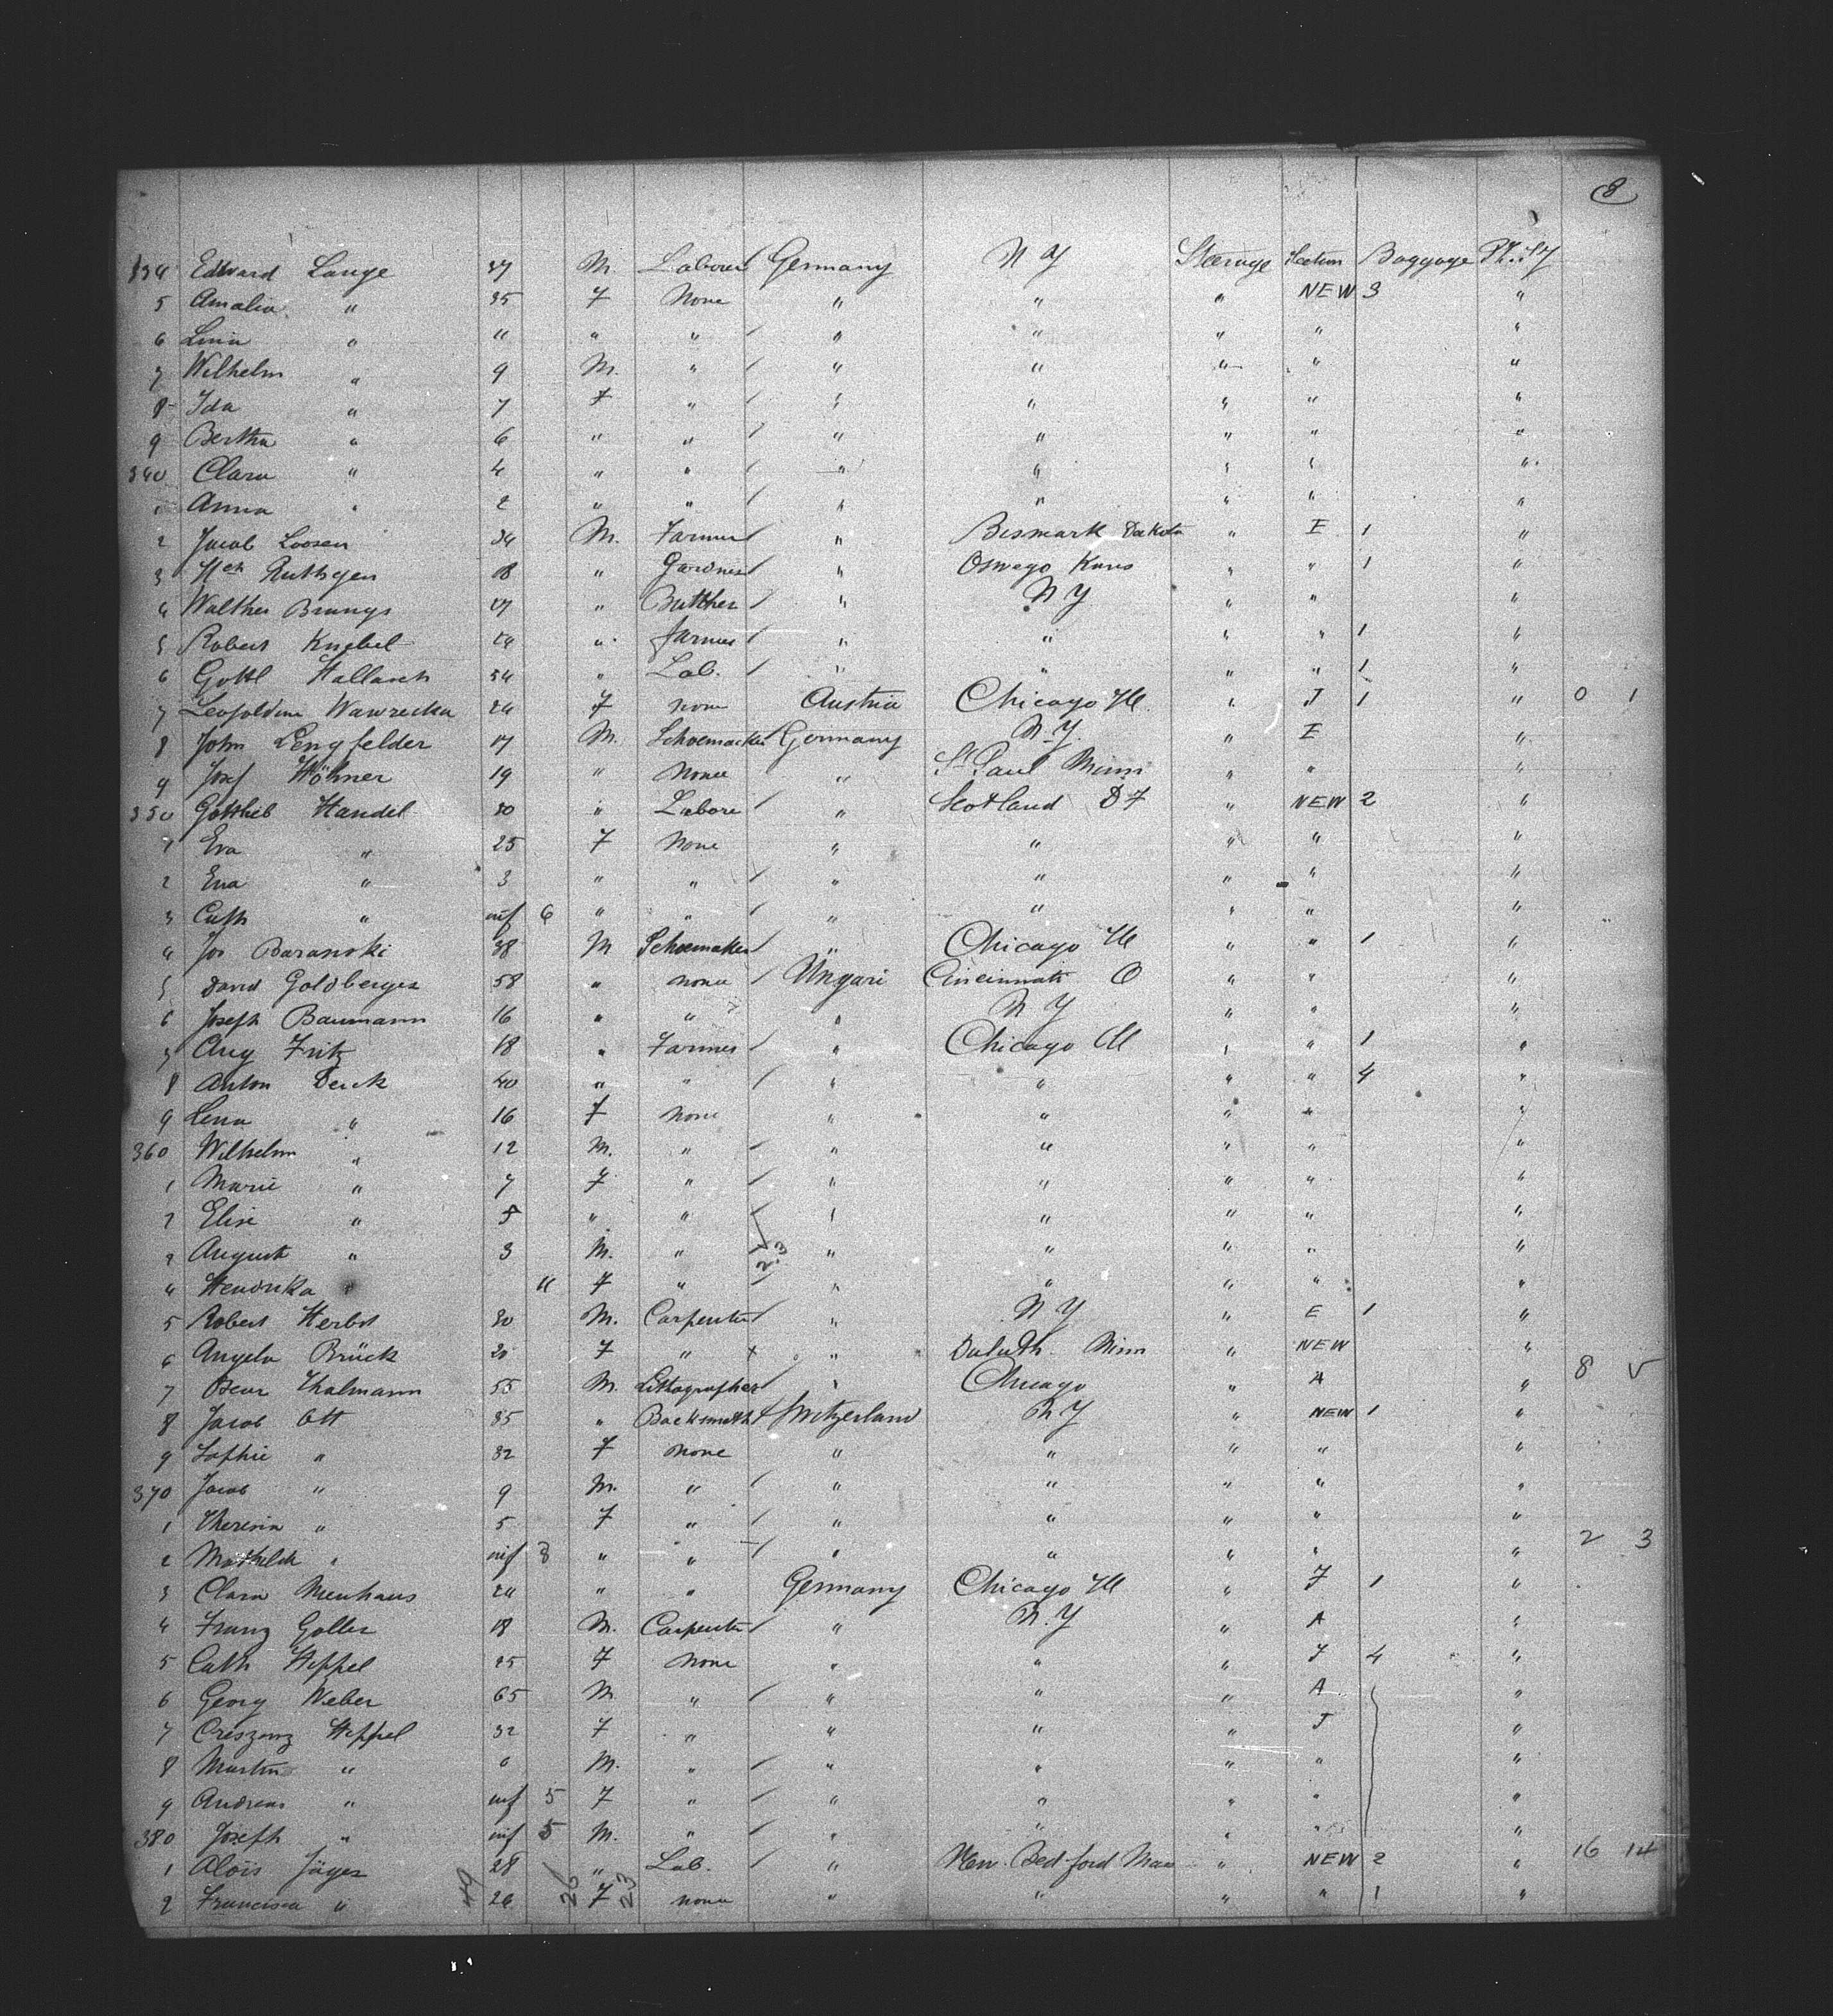 8
334 Edward Lange 37 M. Labourer Germany N Y Steerage Section Baggage Pt. N Y
5 Amalia " 35 F None " " " NEW 3 "
6 Lina " 11 " " " " " " "
7 Wilhelm " 9 M. " " " " " "
8 Ida " 7 F " " " " " "
9 Bertha " 6 " " " " " " "
340 Clara " 4 " " " " " " "
1 Anna " 2 " " " " " " "
2 Jacob Loosen 34 M. Farmer " Bismark Dakota " E 1 "
3 Hch Ruthgen 18 " Gardner " Oswego Kans " " 1 "
4 Walther Brungs 17 " Butther " N Y " " "
5 Robert Knebel 24 " farmer " " " " 1 "
6 Gottl Hallasch 54 " Lab. " " " " 1 "
7 Leopoldine Wawrecka 24 F none Austria Chicago Ill. " J 1 " 0 1
8 John Lengfelder 17 M. Schoemacker Germany N.Y. " E "
9 Josef Höhner 19 " None " St Paul Minn " " "
350 Gottlieb Handel 30 " Labore " Scotland D T " NEW 2 "
1 Eva " 25 F None " " " " "
2 Eva " 3 " " " " " " "
3 Cath " inf 6 " " " " " " "
4 Jos Baranski 38 M Schoemaker " Chicago Ill " " 1 "
5 David Goldberger 58 " none Ungari Cincinnati O " " "
6 Joseph Baumann 16 " " " N Y " " "
7 Aug Fritz 18 " Farmer " Chicago Ill " " 1 "
8 Anton Derck 40 " " " " " " 4 "
9 Lena " 16 F none " " " " "
360 Wilhelm " 12 M. " " " " " "
1 Marie " 7 F " " " " " "
2 Elise " 5 " " " " " " "
3 August " 3 M. " 23 " " " " "
4 Hendrika " 11 F " " " " " "
5 Robert Herbst 30 M. Carpenter " N Y " E 1 "
6 Angela Brück 20 F " x " Duluth. Minn " NEW "
7 Oscar Thalmann 55 M. Lithographer " Chicago " A " 8 5
8 Jacob Ott 35 " Backsmith Switzerland N Y " NEW 1 "
9 Sophie " 32 F None " " " " "
370 Jacob " 9 M. " " " " " "
1 Theresia " 5 F " " " " " "
2 Mathilde " inf 3 " " " " " " " 2 3
3 Clara Neuhaus 24 " " Germany Chicago Ill " J 1 "
4 Franz Goller 18 M. Carpenter " N.Y " A "
5 Cath Heppel 25 F None " " " J 4 "
6 Georg Weber 65 M " " " " A "
7 Creszenz Heppel 32 F " " " " J "
8 Martin " 6 M. " " " " " "
9 Andreas " inf 5 F " " " " " "
380 Joseph " inf 5 M. " " " " " "
1 Aloïs Jäger 28 " Lab. " New. Bedford Mass " NEW 2 " 16 14
2 Francisca " 26 F none " " " " 1 "
49 26 23